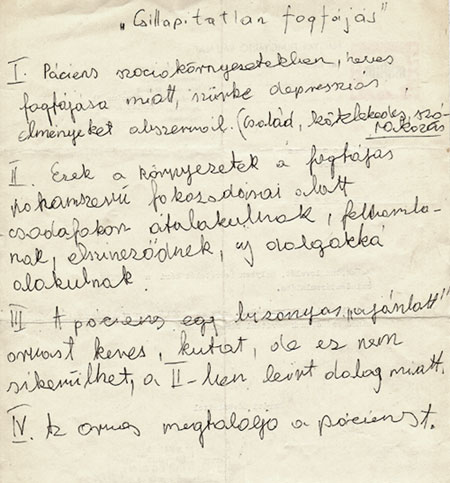 „Csillapitatlan fogfájás"
I. Páciens szociokörnyezetekben, heves
fogfájása miatt, szürke depressziós
élményeket abszervál. (család, kötelekedés, szó-
rakozás
II. Ezek a környezetek a fogfájás
rohamszerű fokozódásai alatt
csodafokon átalakulnak, felbomla-
nak, elszineződnek, új dolgokká
alakulnak.
III A páciens egy bizonyos „ajánlatt"
orvost keres, kutat, de ez nem
sikerülhet, a II-ben leírt dolog miatt.
IV. Az orvos megtalálja a pácienst.